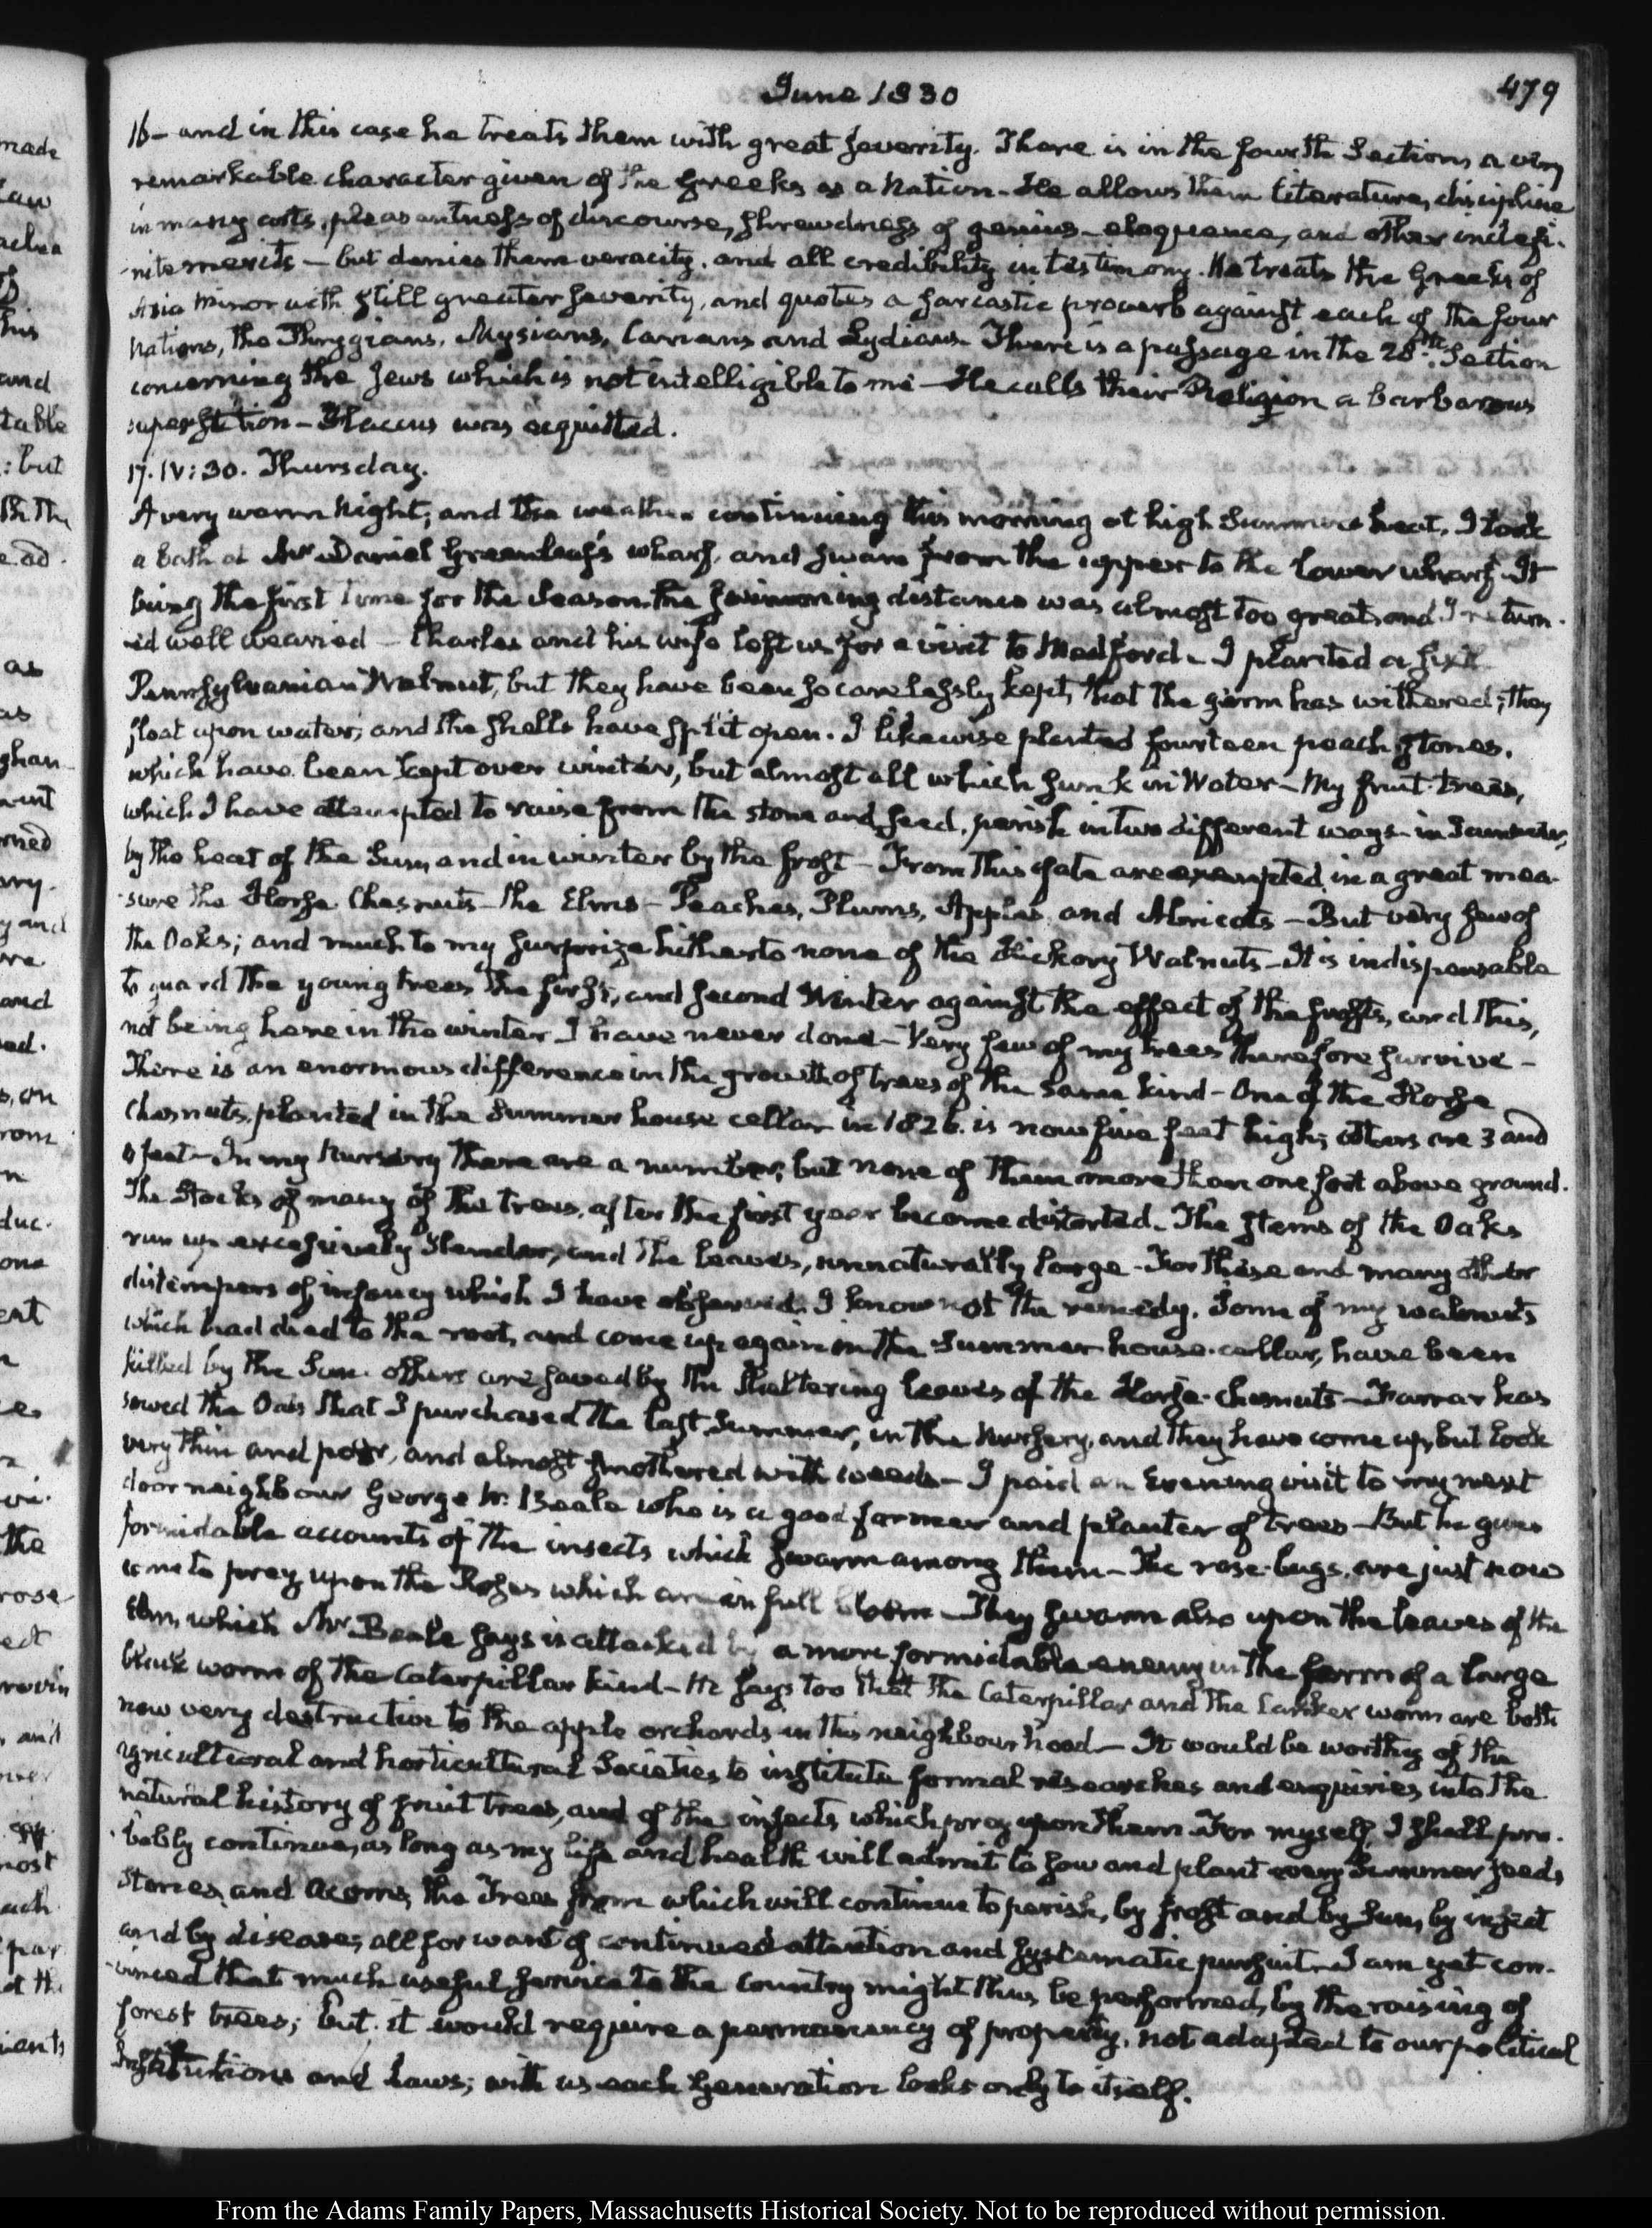 June 1830
479
16 - and in this case he treats them with great severity. There is in the fourth Section, a very
remarkable character given of the Greeks as a Nation - He allows them literature, discipline
in many arts, pleasantness of discourse, shrewdness of genius - eloquence, and other indefi-
nite merits - but denies them veracity, and all credibility in testimony. He treats the Greeks of
Asia Minor with still greater severity, and quotes a sarcastic proverb against each of the four
Nations, the Phrygians, Mysians, Carians and Lydians - There is a passage in the 28th. Section
concerning the Jews which is not intelligible to me - He calls their Religion a barbarous
superstition - Flaccus was acquitted.
17. IV:30. Thursday.
A very warm Night, and the weather continuing this morning at high Summer heat, I took
a bath at Mr Daniel Greenleaf's wharf, and swam from the upper to the lower wharf - It
being the first time for the Season the swimming distance was almost too great, and I return-
ed well wearied - Charles and his wife left us for a visit to Medford - I planted a
Pennsylvanian Walnut, but they have been so carelessly kept, that the germ has withered; they
float upon water; and the shells have split open. I likewise planted fourteen peach stones,
which have been kept over winter, but almost all which sunk in Water - My fruit trees,
which I have attempted to raise from the stone and seed, perish in two different ways - in Summer,
by the heat of the Sun, and in winter by the frost - From this fate are exempted in a great mea-
sure the Horse Chesnuts - the Elms - Peaches, Plums, Apples, and Abricots - But very few of
the Oaks; and much to my surprize hitherto none of the Hickory Walnuts - It is indispensable
to guard the young trees the first, and second Winter against the effect of the frosts, and this,
not being here in the winter I have never done - Very few of my trees therefore survive -
There is an enormous difference in the growth of trees of the same kind - One of the Horse
Chesnuts, planted in the Summer house cellar in 1826. is now five feet high; others are 3 and
feet - In my Nursery there are a number; but none of them more than one foot above ground.
The Stocks of many of the trees, after the first year become distorted - The stems of the Oaks
run up excessively slender, and the leaves, unnaturally large - For these and many other
distempers of infancy which I have observed, I know not the remedy. Some of my walnuts
which had died to the root, and come up again in the Summer house-cellar, have been
killed by the Sun. others are saved by the sheltering leaves of the Horse-chesnuts - Farrar has
sowed the Oats that I purchased the last Summer, in the Nursery, and they have come up, but look
very thin and poor, and almost smothered with weeds - I paid an Evening visit to my next
door neighbour George W. Beale who is a good farmer and planter of trees - But he gives
formidable accounts of the insects which swarm among them - The rose-bugs are just now
come to prey upon the Roses which are in full bloom - They swarm also upon the leaves of the
Elm, which Mr Beale says is attacked by a more formidable enemy in the form of a large
black worm of the Caterpillar kind - He says too that the Caterpillar and the Canker worm are both
now very destructive to the apple orchards in this neighbourhood - It would be worthy of the
agricultural and horticultural Societies to institute formal researches and enquiries into the
natural history of fruit trees, and of the insects which prey upon them. For myself, I shall pro-
bably continue, as long as my life and health will admit to sow and plant every Summer seeds
stones, and acorns, the Trees from which will continue to perish, by frost and by Sun, by insect
and by disease; all for want of continued attention and systematic pursuit - I am yet con-
vinced that much useful service to the Country might thus be performed, by the raising of
forest trees; but it would require a permanency of property, not adapted to our political
Institutions and Laws; with us each Generation looks only to itself.
From the Adams Family Papers, Massachusetts Historical Society. Not to be reproduced without permission.